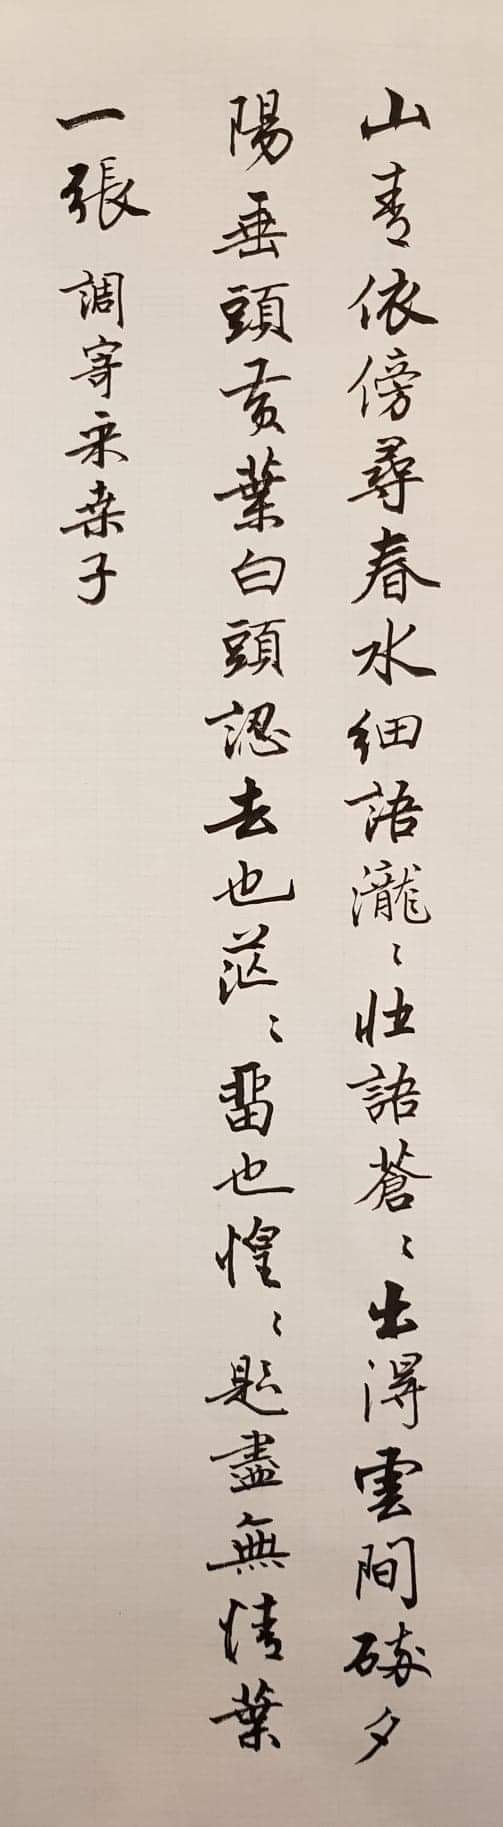 山青依傍尋春水細語瀧〻壯語蒼〻出得雲間夕
陽垂頭黃葉白頭認去也茫〻畱也惶〻題盡無情葉
一張 調寄采桑子